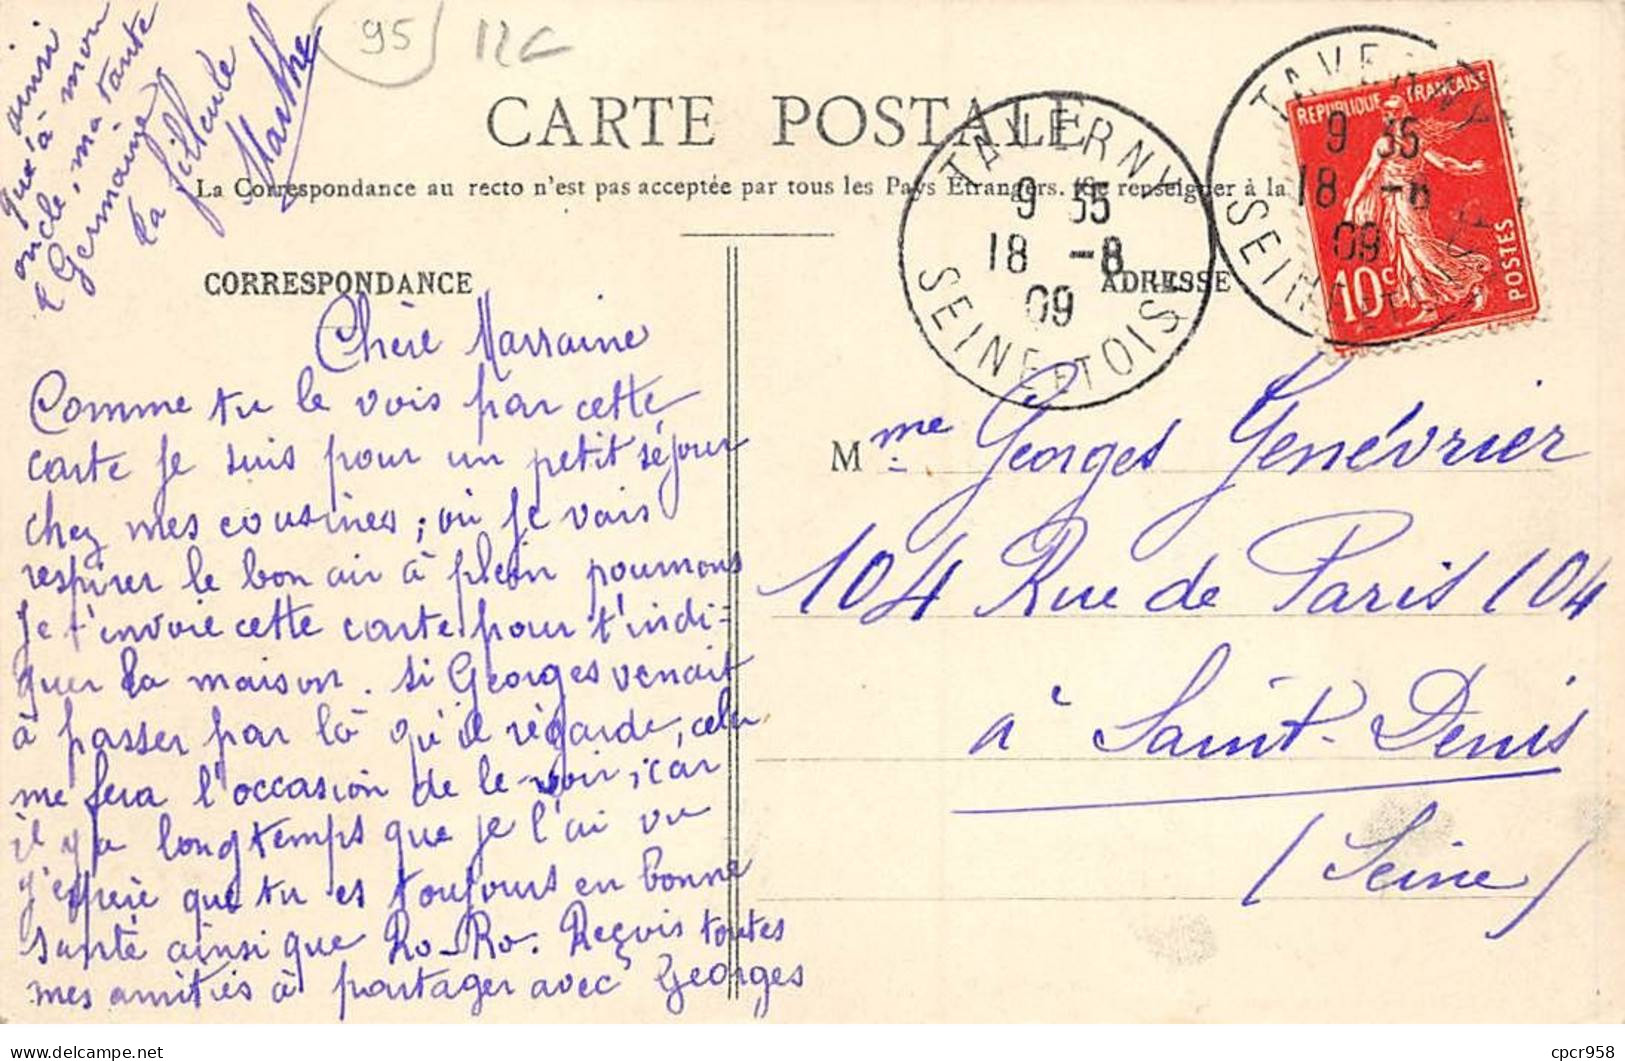 95
CARTE POSTALE
La Correspondance au recto n'est pas acceptée par tous les Pays Etrangers. (Se renseigner à la
CORRESPONDANCE
Chère Marraine
Comme tu le vois par cette
carte je suis pour un petit séjour
chez mes cousines ; où je vais
respirer le bon air à plein poumons
Je t'envoie cette carte pour t'indi-
quer la maison. si Georges venait
à passer par là qu'il regarde, cela
me fera l'occasion de le voir, car
il y a longtemps que je l'ai vu
j'espère que tu es toujours en bonne
santé ainsi que Ro-Ro. Reçois toutes
mes amitiés à partager avec Georges
ainsi
que à mon
oncle, ma tante
& Germaine
ta filleule
Marthe
ADRESSE
TAVERNY
9 35
18 -8
09
SEINE ET OISE
TAVERNY
9 35
18 -8
09
SEINE ET OISE
REPUBLIQUE FRANCAISE
10c
POSTES
Mme Georges Genévrier
104 Rue de Paris 104
à Saint-Denis
(Seine)
delcampe.net
cpcr958